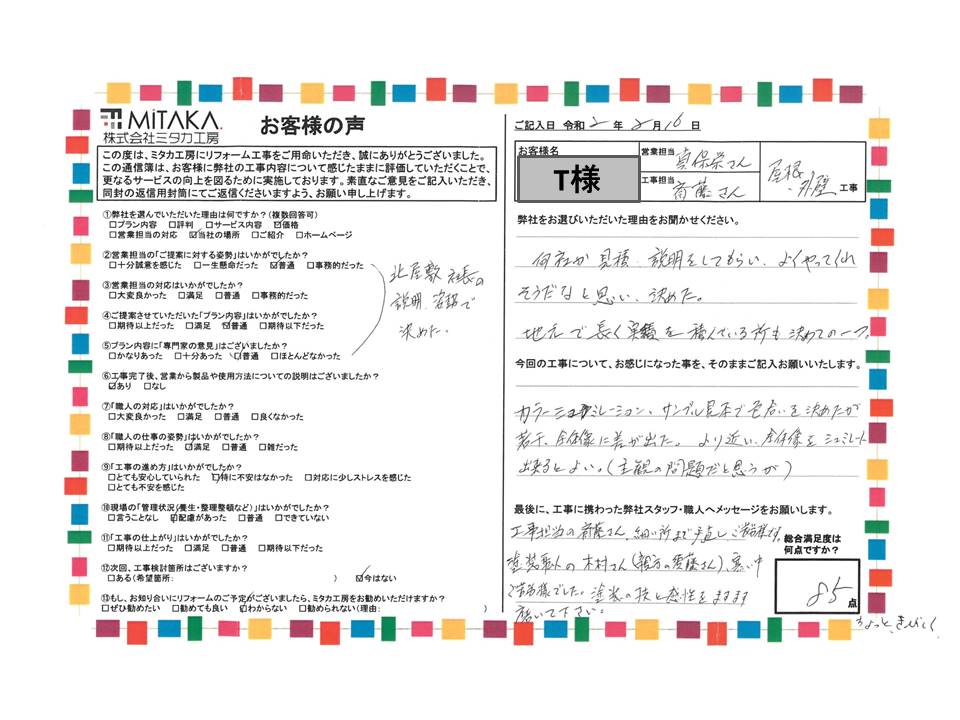 MiTAKA.
株式会社ミタカ工房
お客様の声
この度は、ミタカ工房にリフォーム工事をご用命いただき、誠にありがとうございました。
この通信簿は、お客様に弊社の工事内容について感じたままに評価していただくことで、
更なるサービスの向上を図るために実施しております。素直なご意見をご記入いただき、
同封の返信用封筒にてご返信くださいますよう、お願い申し上げます。
①弊社を選んでいただいた理由は何ですか?(複数回答可)
□プラン内容 □評判 □サービス内容 ☑価格
□営業担当の対応 ☑当社の場所 □ご紹介 □ホームページ
②営業担当の「ご提案に対する姿勢」はいかがでしたか?
□十分誠意を感じた □一生懸命だった ☑普通 □事務的だった
③営業担当の対応はいかがでしたか?
□大変良かった □満足 □普通 □事務的だった
④ご提案させていただいた「プラン内容」はいかがでしたか?
□期待以上だった □満足 ☑普通 □期待以下だった
⑤プラン内容に「専門家の意見」はございましたか?
□かなりあった □十分あった ☑普通 □ほとんどなかった
北屋敷社長の
説明、容認で
決めた.
⑥工事完了後、営業から製品や使用方法についての説明はございましたか?
☑あり □なし
⑦「職人の対応」はいかがでしたか?
□大変良かった □満足 □普通 □良くなかった
⑧「職人の仕事の姿勢」はいかがでしたか?
□期待以上だった ☑満足 □普通 □雑だった
⑨「工事の進め方」はいかがでしたか?
□とても安心していられた ☑特に不安はなかった □対応に少しストレスを感じた
□とても不安を感じた
⑩現場の「管理状況(養生・整理整頓など)」はいかがでしたか?
□言うことなし ☑配慮があった □普通 □できていない
⑪「工事の仕上がり」はいかがでしたか?
□期待以上だった □満足 □普通 □期待以下だった
⑫次回、工事検討箇所はございますか?
□ある(希望箇所: ) ☑今はない
⑬もし、お知り合いにリフォームのご予定がございましたら、ミタカ工房をお勧めいただけますか?
□ぜひ勧めたい □勧めても良い ☑わからない □勧められない(理由: )
ご記入日 令和 2 年 2 月 16 日
お客様名
T様
営業担当 真保栄さん
工事担当 斎藤さん
屋根・外壁 工事
弊社をお選びいただいた理由をお聞かせください。
何社か見積、説明をしてもらい、よくやってくれ
そうだなと思い、決めた。
地元で長く実績を積んでいる所も決めての一つ。
今回の工事について、お感じになった事を、そのままご記入お願いいたします。
カラーシュミレーション、サンプル見本で色合いを決めたが
若干、全体像に差が出た。より近い、全体像をシュミレート
出来るとよい。(主観の問題だと思うが)
最後に、工事に携わった弊社スタッフ・職人へメッセージをお願いします。
工事担当の斎藤さん、細い所まで手直しご苦労様でした。
塗装職人の木村さん(親方の斎藤さん)、寒い中
ご苦労様でした。塗装の技と感性をますます
磨いて下さい。
総合満足度は
何点ですか?
85 点
ちょっと、きびしく